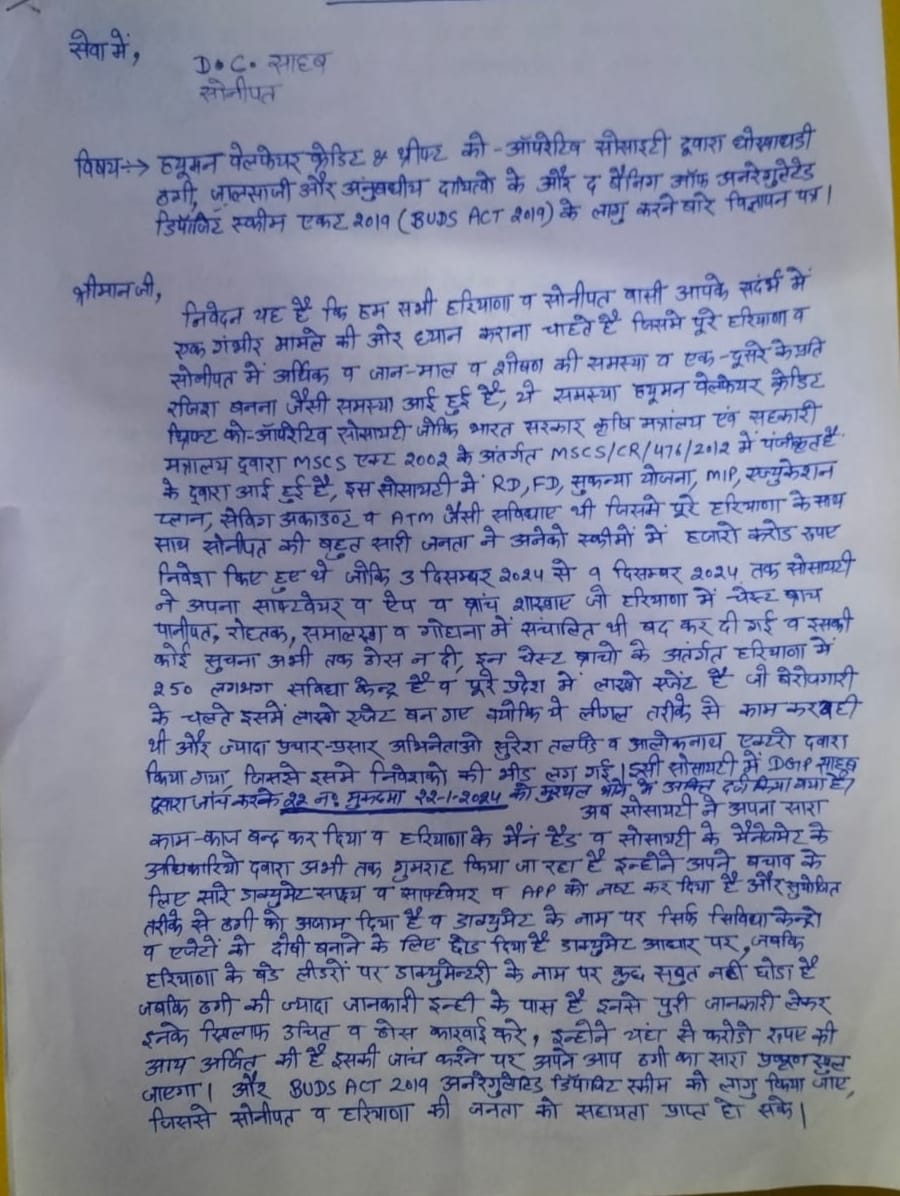 सेवा में,
D.C. साहब
सोनीपत
विषय:-> ह्यूमन वेलफेयर क्रेडिट & थ्रीफ्ट को-ऑपरेटिव सोसाइटी द्वारा धोखाधडी
ठगी, जालसाजी और अनुबधीय दायित्वो के और द बैनिग ऑफ अनरेगुलेटेड
डिपॉजिट स्कीम एक्ट 2019 (BUDS ACT 2019) के लागु करने बारे विज्ञापन पत्र।
श्रीमान जी,
निवेदन यह है कि हम सभी हरियाणा व सोनीपत वासी आपके संदर्भ में
एक गंभीर मामले की ओर ध्यान कराना चाहते है जिसमे पूरे हरियाणा व
सोनीपत में आर्थिक व जान-माल व शोषण की समस्या व एक-दूसरे के प्रति
रजिश बनना जैसी समस्या आई हुई है, ये समस्या ह्यूमन वेलफेयर क्रेडिट
थ्रिफ्ट को-ऑपरेटिव सोसायटी जोकि भारत सरकार कृषि मंत्रालय एवं सहकारी
मंत्रालय द्वारा MSCS एक्ट 2002 के अंतर्गत MSCS/CR/476/2012 में पंजीकृत है
के द्वारा आई हुई है, इस सोसायटी में RD, FD, सुकन्या योजना, MIP, एज्युकेशन
प्लान, सेविग अकाउण्ट व ATM जैसी सविधाए थी जिसमे पूरे हरियाणा के साथ
साथ सोनीपत की बहुत सारी जनता ने अनेको स्कीमों में हजारो करोड रुपए
निवेश किए हुए थे जोकि 3 दिसम्बर 2024 से 9 दिसम्बर 2024 तक सोसायटी
ने अपना साफ्टवेयर व ऐप व ब्रांच शाखाए जो हरियाणा में चेस्ट ब्राच
पानीपत, रोहतक, समालखा व गोहाना में संचालित थी बद कर दी गई व इसकी
कोई सुचना अभी तक ठोस न दी, इन चेस्ट ब्राचो के अंतर्गत हरियाणा में
250 लगभग सविधा केन्द्र है व पूरे प्रदेश में लाखो एजेंट है जो बेरोजगारी
के चलते इसमें लाखो एजेट बन गए क्योकि ये लीगल तरीके से काम कर रही
थी और ज्यादा प्रचार-प्रसार अभिनेताओ सुरेश तलपडे व आलोकनाथ एक्टरो द्वारा
किया गया, जिससे इसमे निवेशको की भीड लग गई। इसी सोसायटी में DGP साहब
द्वारा जांच करके 22 न० मुकदमा 22-1-2024 को मुरथल थाने के अर्न्तगत दर्ज किया गया है।
अब सोसायटी ने अपना सारा
काम-काज बन्द कर दिया व हरियाणा के मैन हैड व सोसायटी के मैनेजमेट के
अधिकारियो द्वारा अभी तक गुमराह किया जा रहा है इन्होने अपने बचाव के
लिए सारे डाक्युमेट साक्ष्य व साफ्टवेयर व APP को नष्ट कर दिया है और सुयोजित
तरीके से ठगी को अजाम दिया है व डाक्युमेट के नाम पर सिर्फ सिविधा केन्द्रो
व एजेटों को दोषी बनाने के लिए छोड दिया है डाक्युमेट आधार पर, जबकि
हरियाणा के बडे लीडरों पर डाक्युमेन्टरी के नाम पर कुछ सबुत नही छोडा है
जबकि ठगी की ज्यादा जानकारी इन्ही के पास है इनसे पुरी जानकारी लेकर
इनके खिलाफ उचित व ठोस कारवाई करे, इन्होने यहां से करोडो रुपए की
आय अर्जित की है इसकी जांच करने पर अपने आप ठगी का सारा खुल
जाएगा। और BUDS ACT 2019 अनरेगुलेटिड डिपॉजिट स्कीम को लागु किया जाए,
जिससे सोनीपत व हरियाणा की जनता को सहायता प्राप्त हो सके।